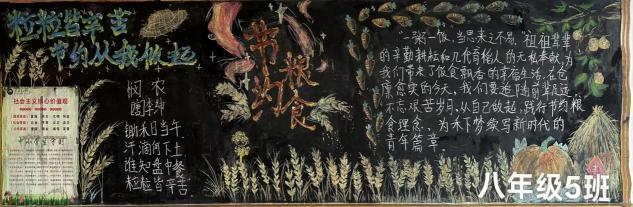 粒粒皆辛苦
节约从我做起
社会主义核心价值观
中小学生守则
悯农
唐 李绅
锄禾日当午
汗滴禾下土
谁知盘中餐
粒粒皆辛苦
节约粮食
"一粥一饭,当思来之不易。"祖祖辈辈
的辛勤耕耘和几代育种人的无私奉献,为
我们带来了饭食飘香的幸福生活。在仓
廪愈实的今天,我们要追随前辈足迹
不忘艰苦岁月,从自己做起,践行节约粮
食理念,为禾下梦续写新时代的
青年篇章。
八年级5班